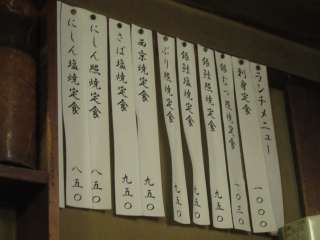 ランチメニュー 一〇〇〇
刺身定食 一〇三〇
銀だら照焼定食 九五〇
銀鮭照焼定食 九五〇
銀鮭塩焼定食 九五〇
ぶり照焼定食 九五〇
西京焼定食 九五〇
さば塩焼定食 九五〇
にしん照焼定食 八五〇
にしん塩焼定食 八五〇